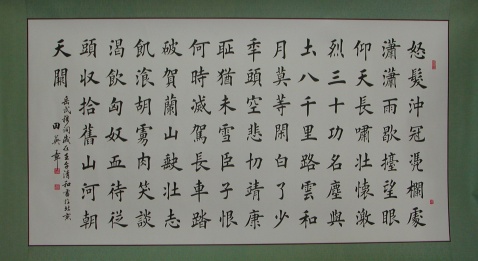 怒髮沖冠凴欄處
瀟瀟雨歇擡望眼
仰天長嘯壯懷激
烈三十功名塵與
土八千里路雲和
月莫等閑白了少
秊頭空悲切靖康
耻猶未雪臣子恨
何時滅駕長車踏
破賀蘭山缺壯志
飢湌胡虜肉笑談
渴飲匈奴血待從
頭収拾舊山河朝
天闕
岳武穆詞歲在清和書於北京
田英章